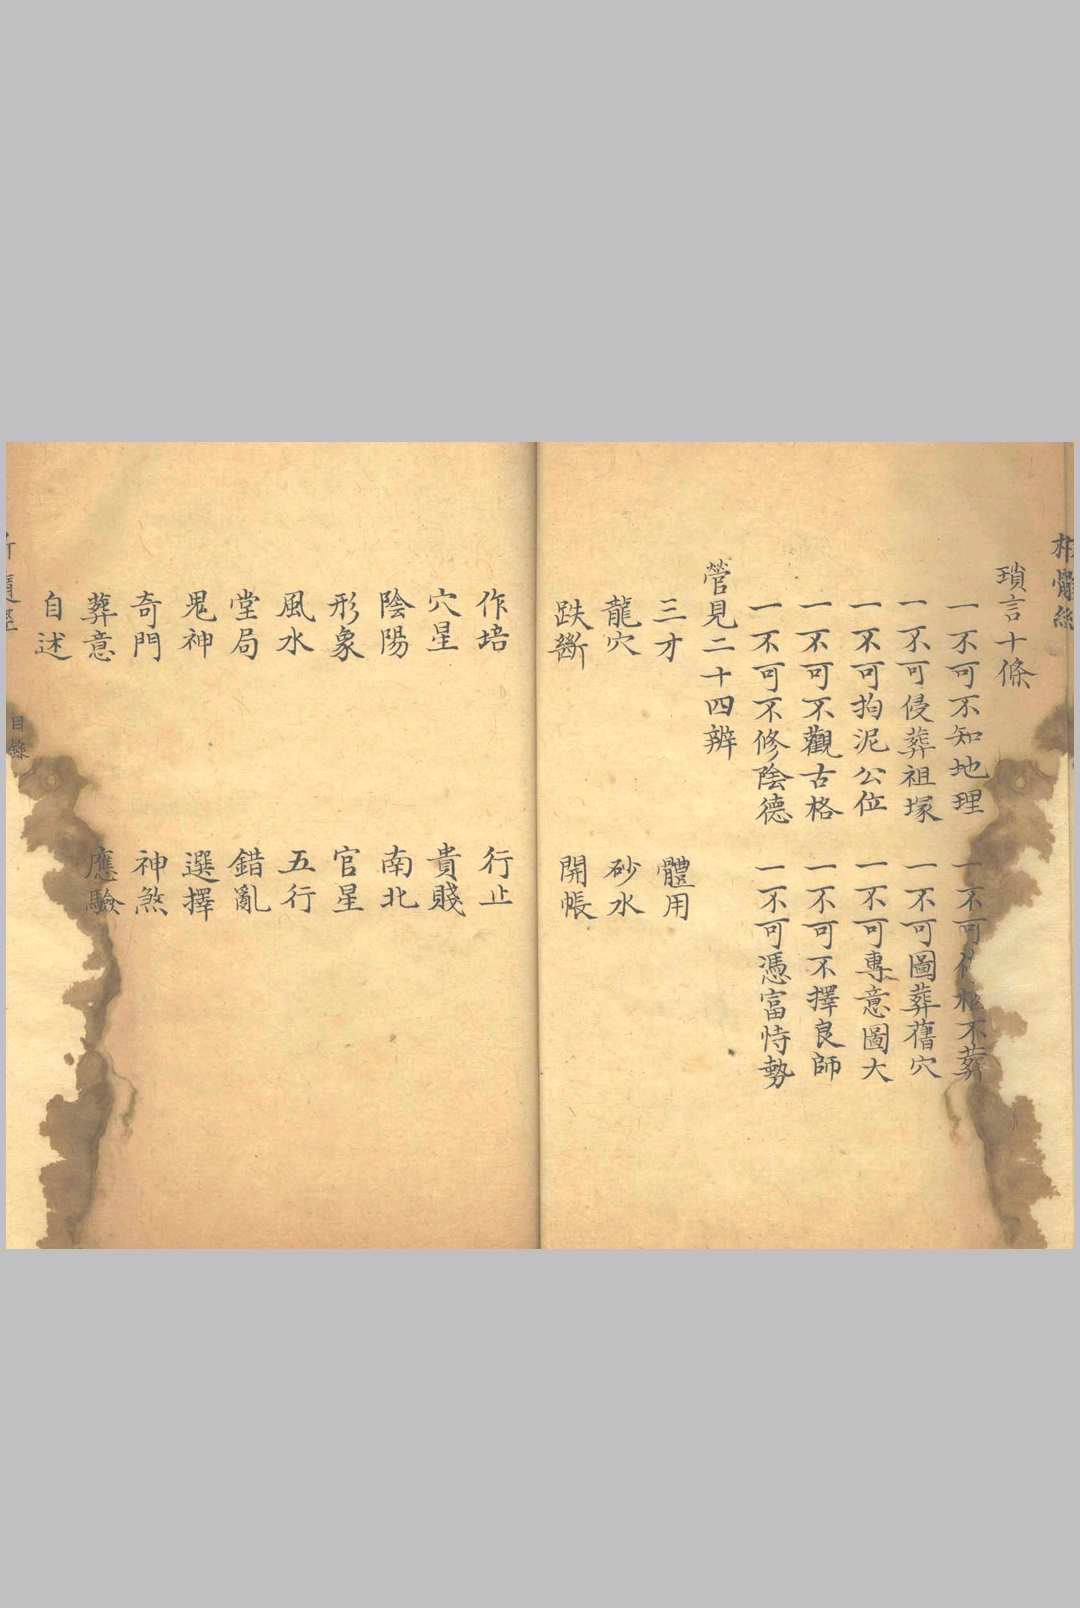 瑣言十條
一不可不知地理 一不可 不葬
一不可侵葬祖塚 一不可圖葬舊穴
一不可拘泥公位 一不可專意圖大
一不可不觀古格 一不可不擇良師
一不可不修陰德 一不可憑富恃勢
管見二十四辨
三才 體用
龍穴 砂水
跌斷 開帳
作培 行止
穴星 貴賤
陰陽 南北
形象 官星
風水 五行
堂局 錯亂
鬼神 選擇
奇門 神煞
葬意 應驗
自述
目錄